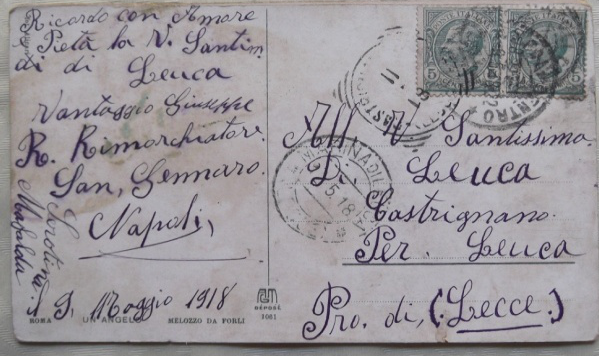 Ricordo con Amore
Pietà la V. Santim
di di Leuca
Vantaggio Giuseppe
R. Rimorchiatore
San, Gennaro.
Napoli,
Mafalda
il 9, Maggio 1918
ROMA UN ANGELO MELOZZO DA FORLI
DÉPOSÉ
1061
POSTE ITALIANE
5
CENTRO
5.18
All V Santissima
Di Leuca
Castrignano
Per. Leuca
Pro. di, (Lecce.)